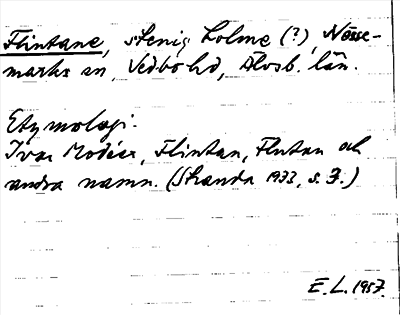 Flintane, stenig holme (?), Nösse-
marks sn, Vedbo hd, Älvsb. län.
Etymologi.
Ivar Modéer, Flintan, Flutan och
andra namn. (Skanda 1933, s. 3.)
E. L. 1957.